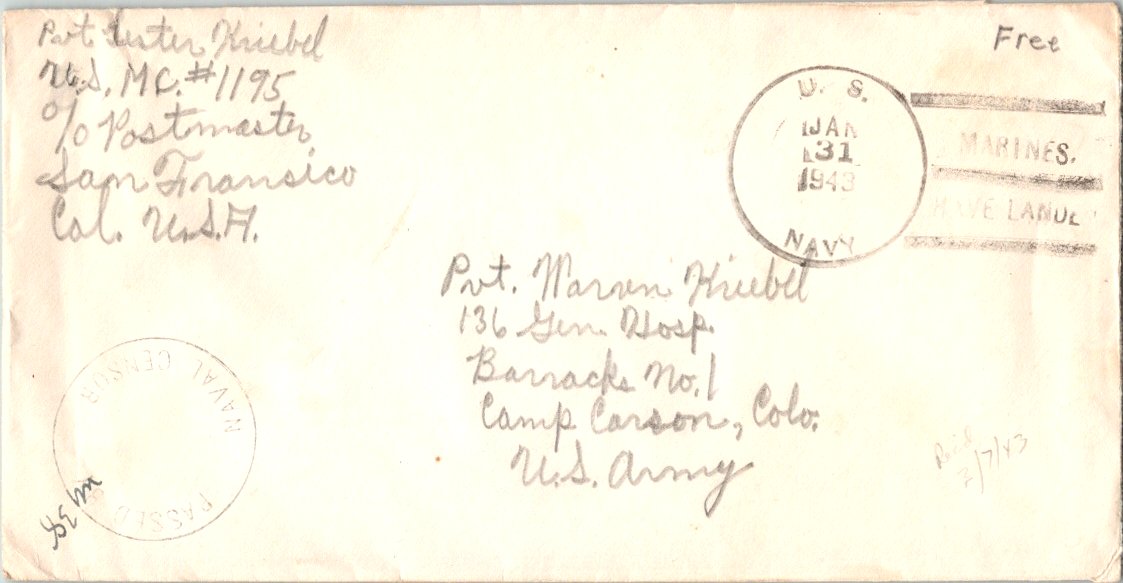 Pvt Lester Kriebel
U.S. M.C. #1195
c/o Postmaster
San Fransico
Cal. U.S.A.
Free
U. S.
JAN
31
1943
NAVY
MARINES.
HAVE LANDED
Pvt. Warren Kriebel
136 Gen. Hosp.
Barracks No. 1
Camp Carson, Colo.
U.S. Army
PASSED
NAVAL CENSOR
2/7/43